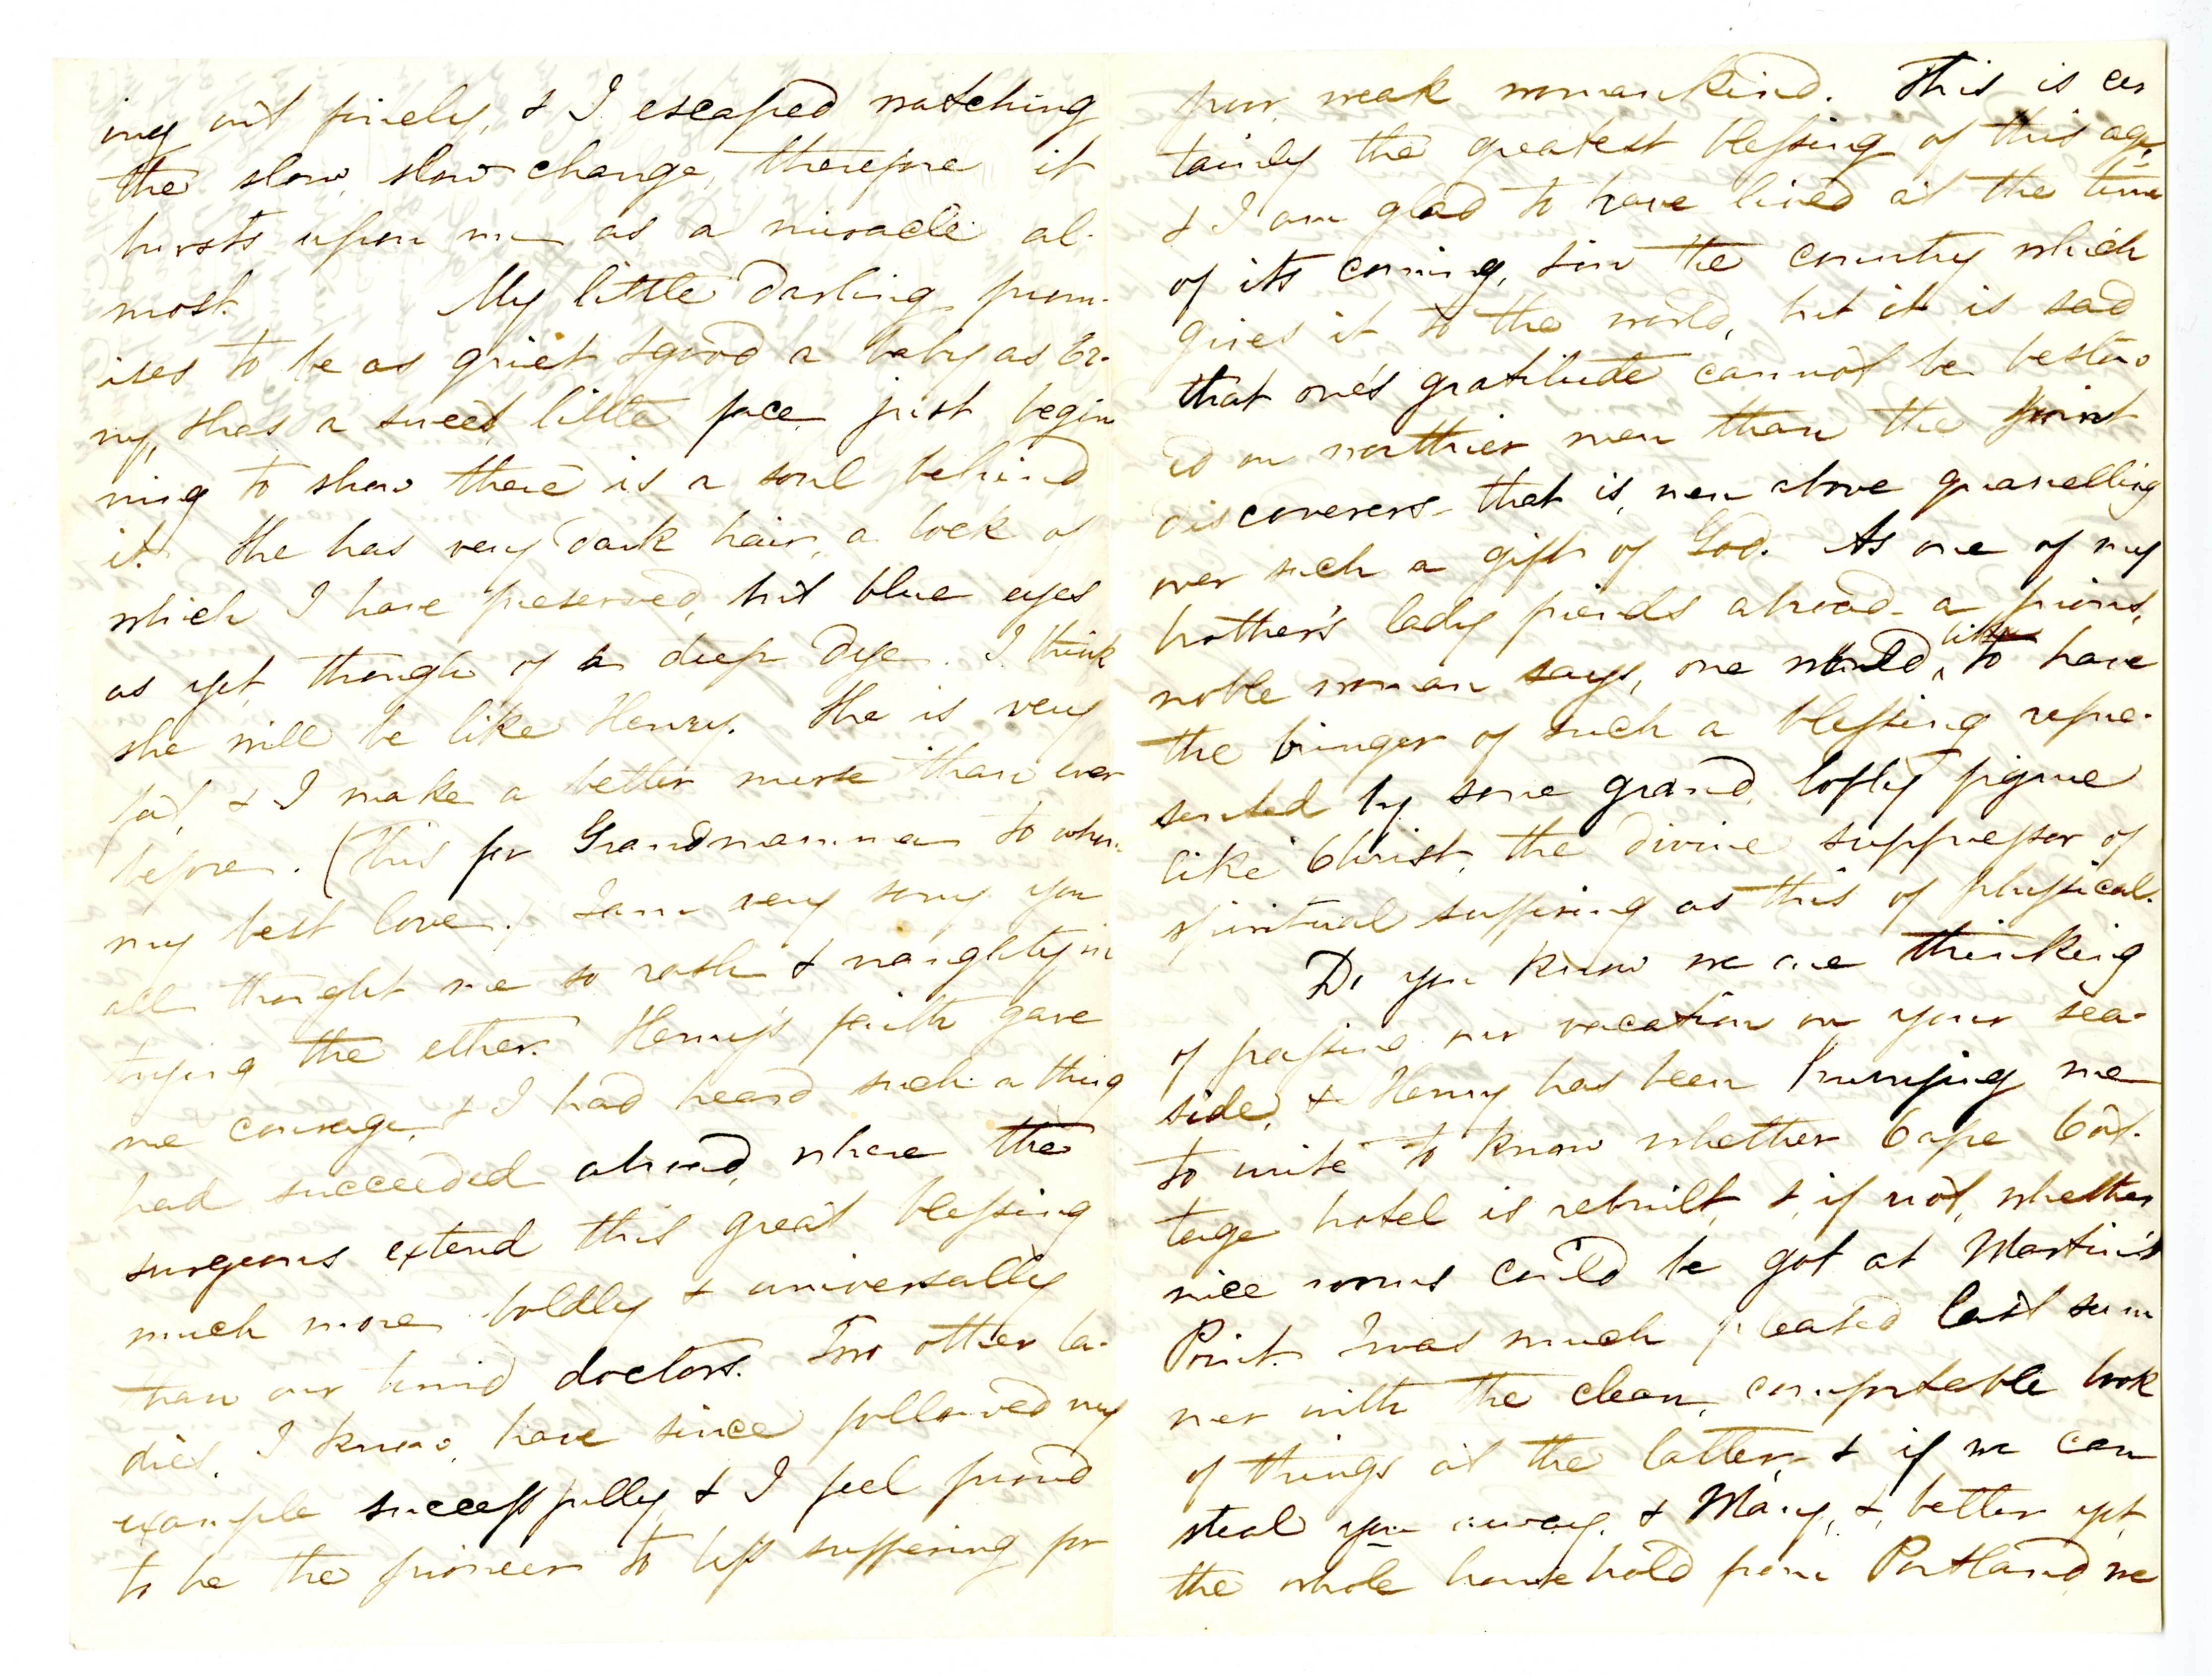 ing out finely, & I escaped watching
the slow, slow change, therefore it
bursts upon me as a miracle al-
most. My little darling prom-
ises to be as quiet & good a baby as Er-
ny, Shes a sweet little face just begin
ning to show there is a soul behind
it. She has very dark hair, a lock of
which I have preserved, but blue eyes
as yet though of a deep dye. I think
she will be like Henry. She is very
fat, & I make a better nurse than ever
before. (This for Grandmamma to whom
my best love.) I am very sorry you
all thought me so rash & naughty in
trying the ether. Henry's faith gave
me courage, & I had heard such a thing
had succeeded abroad, where the
surgeons extend this great blessing
much more boldly & universally
than our timid doctors. Two other la-
dies, I know, have since followed my
example successfully & I feel proud
to be the pioneer to less suffering for
poor, weak womankind. This is cer
tainly the greatest blessing of this age,
& I am glad to have lived at the time
of its coming, & in the country which
gives it to the world, but it is sad
that one's gratitude cannot be bestow
ed on worthier men than the joint
discoverers - that is, men above quarrelling
over such a gift of God. As one of my
brother's lady friends abroad - a pious,
noble woman says, one would like to have
the bringer of such a blessing repre-
sented by some grand, lofty figure
like Christ, the divine suppressor of
spiritual suffering as this of physical.
Do you know we are thinking
of passing our vacation on your sea-
side, & Henry has been hurrying me
to write to know whether Cape Cot-
tage hotel is rebuilt, &, if not, whether
nice rooms could be got at Martin's
Point. I was much pleased last sum
mer with the clean, comfortable look
of things at the latter, & if we can
steal you away, & Mary, &, better yet,
the whole household from Portland we